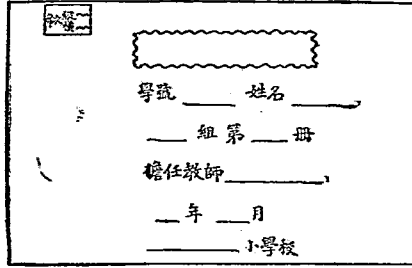 學號____ 姓名______
____組第____冊
擔任教師________
___年___月
________小學校